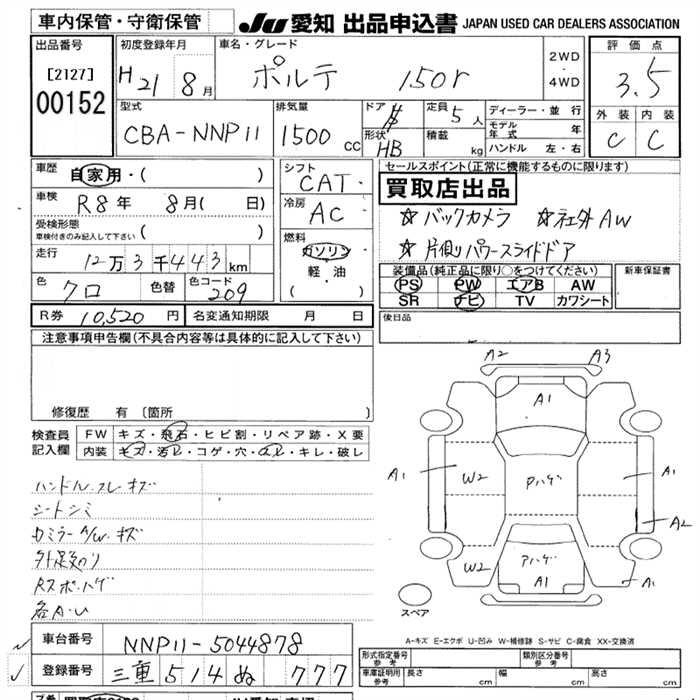 車内保管・守衛保管 JU 愛知 出品申込書 JAPAN USED CAR DEALERS ASSOCIATION
出品番号 初度登録年月 車名・グレード 評価点
[2127] H 21 8月 ポルテ 150r 2WD・4WD 3.5
00152
型式 排気量 ドア 定員 5人 ディーラー・並行 外装 内装
CBA-NNP11 1500 cc 形状 HB 積載 kg モデル年式 年 C C
ハンドル 左・右
車歴 自家用・( ) シフト CAT セールスポイント(正常に機能するものに限ります)
車検 R8年 8月( 日) 冷房 AC 買取店出品
受検形態 ☆バックカメラ ☆社外AW
車検付きのみ記入して下さい ( ) 燃料 ☆片側パワースライドドア
走行 12万3千443km ガソリン
軽・油
( )
装備品(純正品に限り○をつけてください) 新車保証書
色 クロ 色替 色コード 209 PS PW エアB AW
SR ナビ TV カワシート
R券 10,520円 名変通知期限 月 日 後日品
注意事項申告欄(不具合内容等は具体的に記入して下さい)
修復歴 有 〔箇所 〕
検査員記入欄 FW キズ・飛石・ヒビ割・リペア跡・X要
内装 キズ・汚レ・コゲ・穴・スレ・キレ・破レ
ハンドルスレキズ
シートシミ
カミラーA/Wキズ
各A・U
A2 A3
A1
A1 W2 Pハゲ A1
A2
W2 Pハゲ
A1 A1
スペア
A-キズ E-エクボ U-凹み W-補修跡 S-サビ C-腐食 XX-交換済
車台番号 NNP11-5044878
登録番号 三重 514 ぬ 777
形式指定番号 参考 類別区分番号 参考
車庫証明用 参考 長さ 幅 高さ